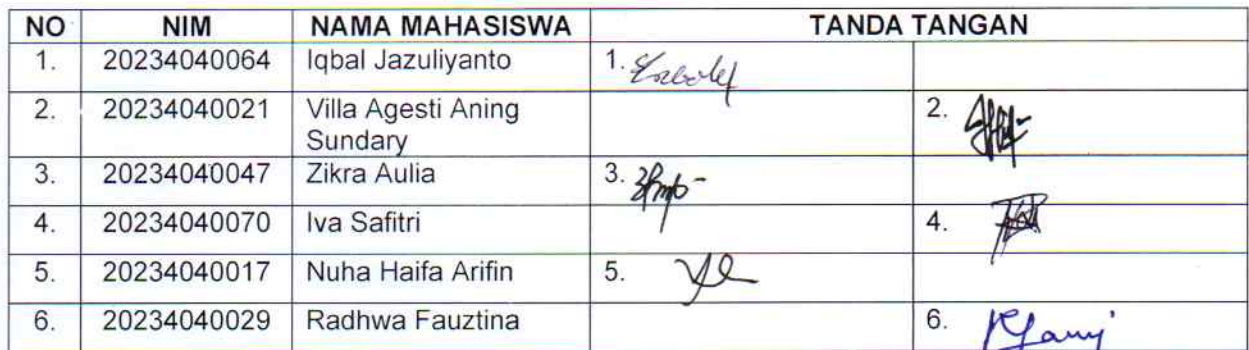 NO NIM NAMA MAHASISWA TANDA TANGAN
1. 20234040064 Iqbal Jazuliyanto 1.
2. 20234040021 Villa Agesti Aning 2.
Sundary
3. 20234040047 Zikra Aulia 3.
4. 20234040070 Iva Safitri 4.
5. 20234040017 Nuha Haifa Arifin 5.
6. 20234040029 Radhwa Fauztina 6.